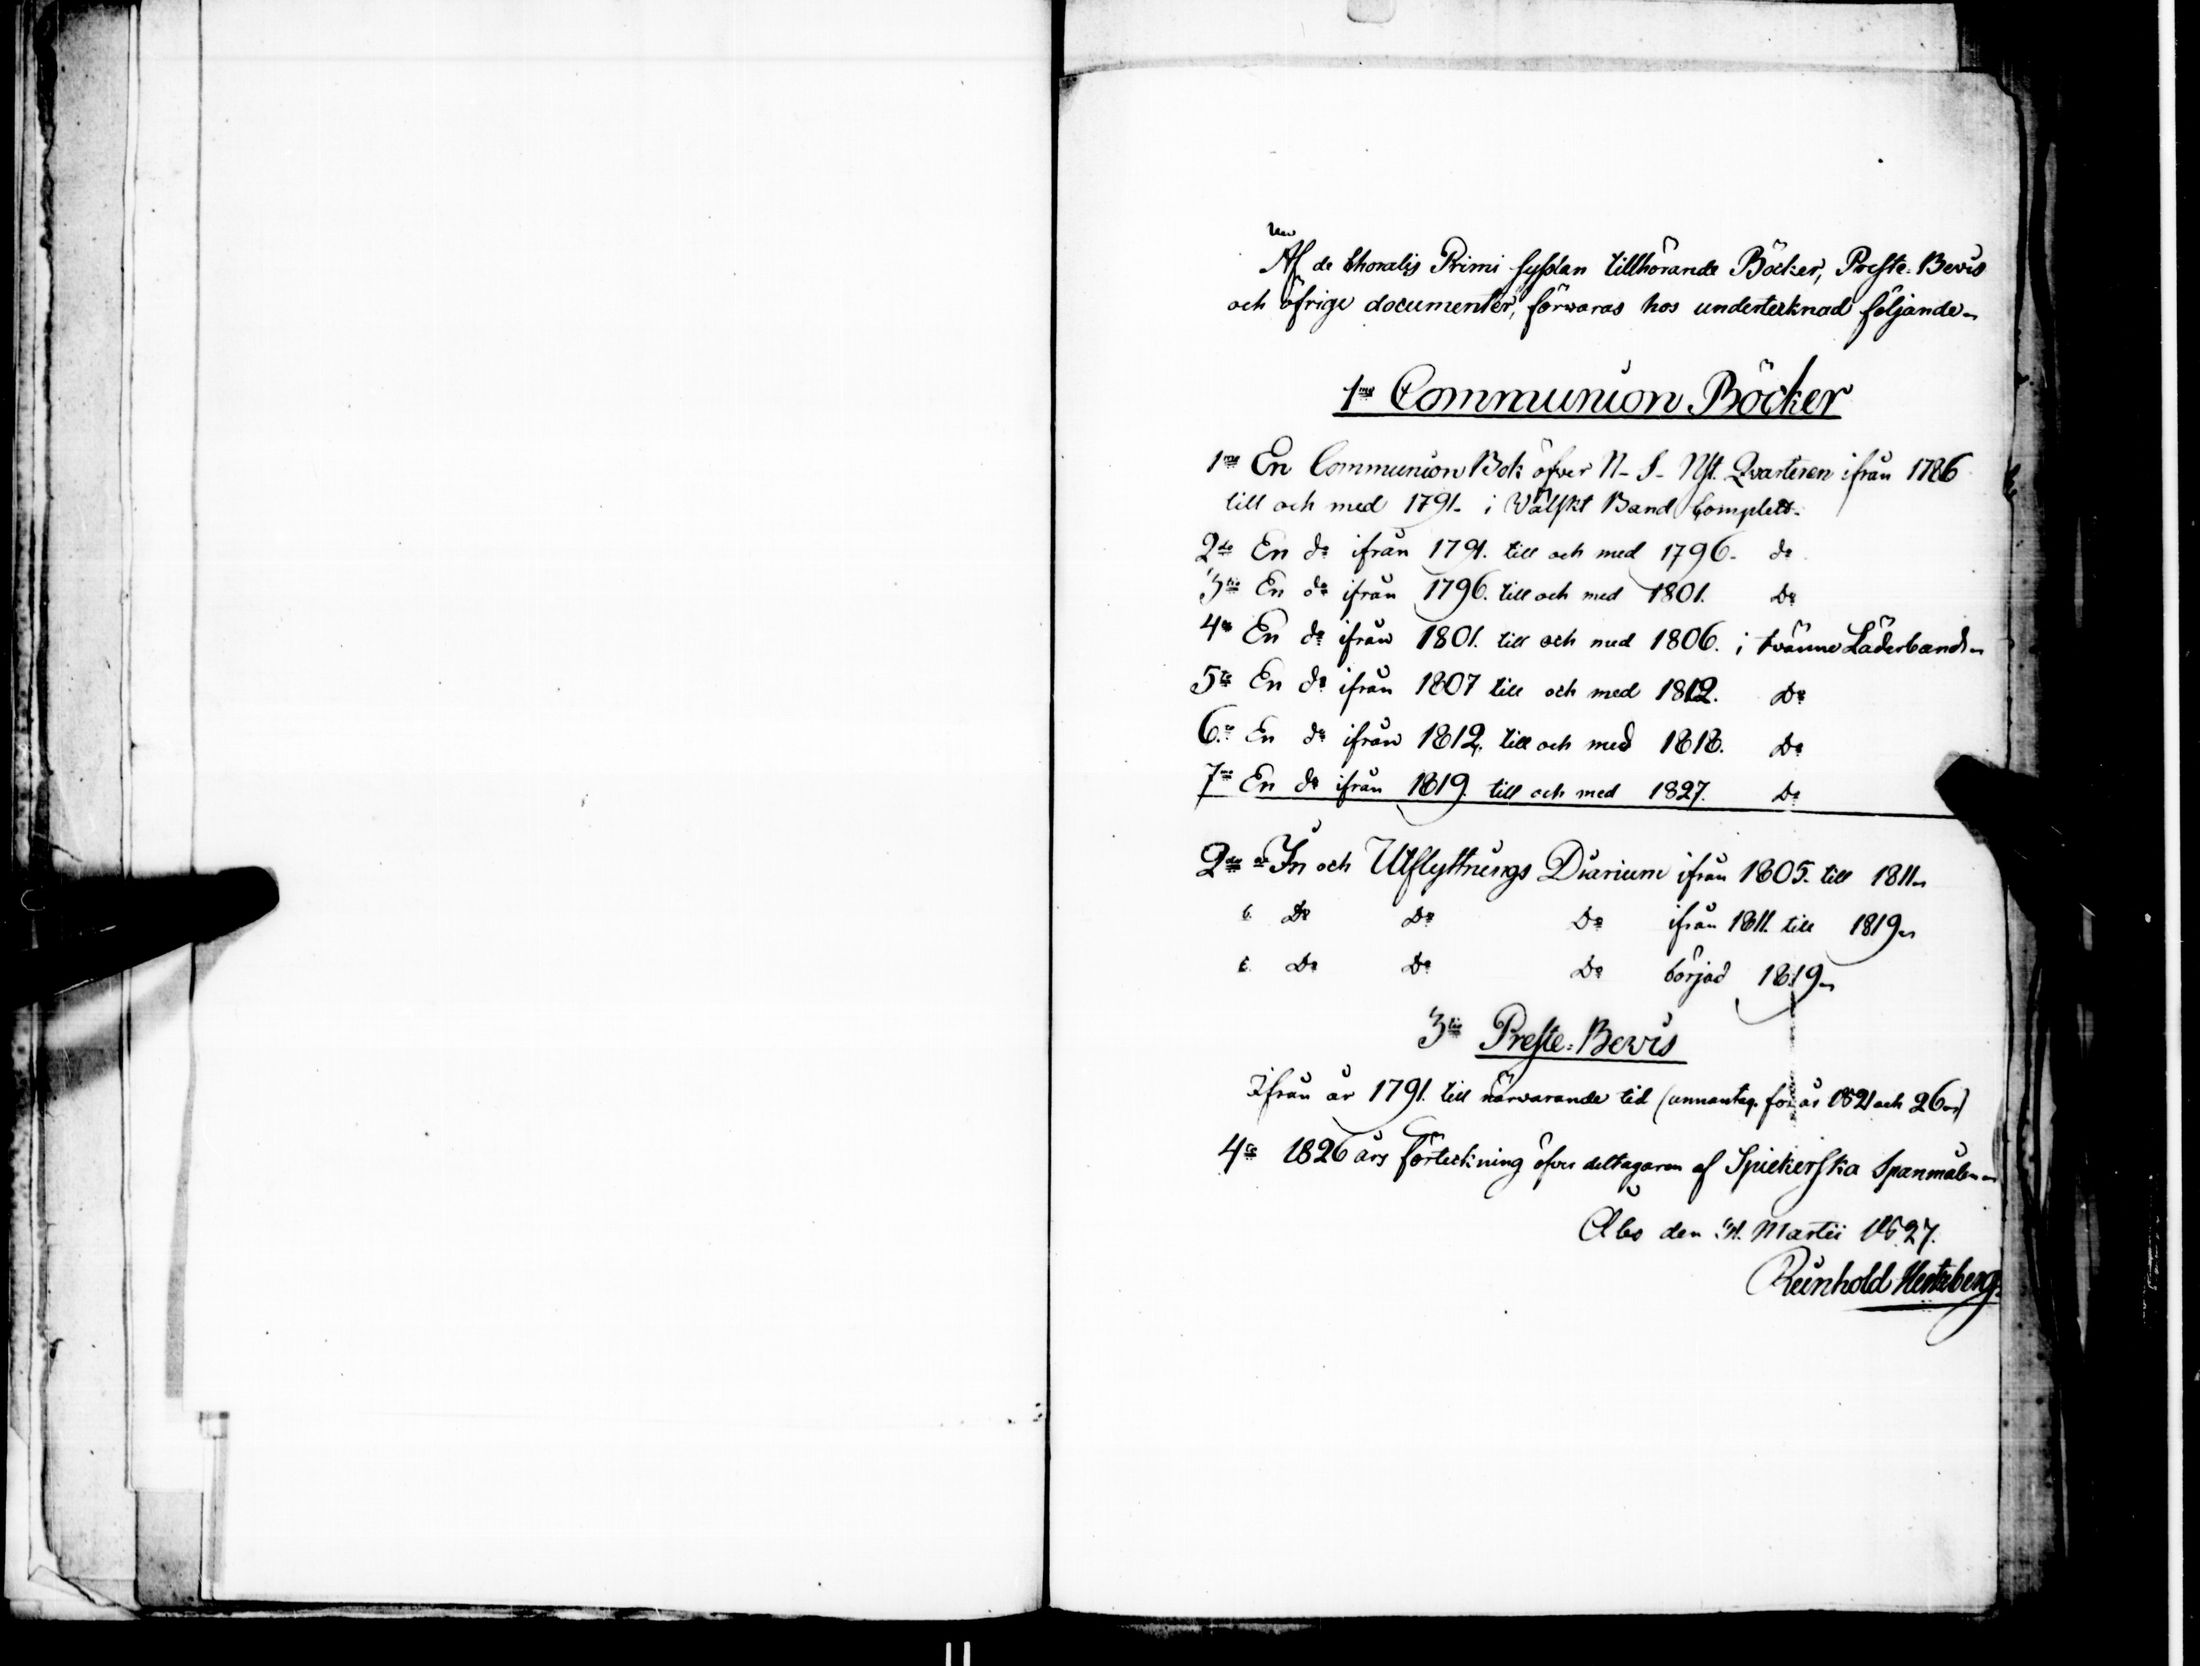 Af de Choralis Primi sysslan tillhörande Böcker, Preste-Bevis
och öfrige documenter, förvaras hos undertecknad följande
1mo Communion Böcker
1mo En Communion Bok öfver N- S- Nst. Qvarteren ifrån 1786
till och med 1791. i Wälskt Band Complett.
2do En do ifrån 1791. till och med 1796. do
3tio En do ifrån 1796. till och med 1801. Do
4to En do ifrån 1801. till och med 1806. i tvänne Läderband
5to En do ifrån 1807 till och med 1812. Do
6to En do ifrån 1812. till och med 1818. Do
7mo En do ifrån 1819. till och med 1827. Do
2do a In och Utflyttnings Diarium ifrån 1805. till 1811
b. Do Do Do ifrån 1811. till 1819
c. Do Do Do börjad 1819
3tio Preste-Bevis
Ifrån år 1791. till närvarande tid (unnantag. för år 1821 och 26)
4to 1826 års förteckning öfver deltagaren af Spiekerska Spanmålen
Åbo den 31. Martii 1827.
Reinhold Hertzberg.